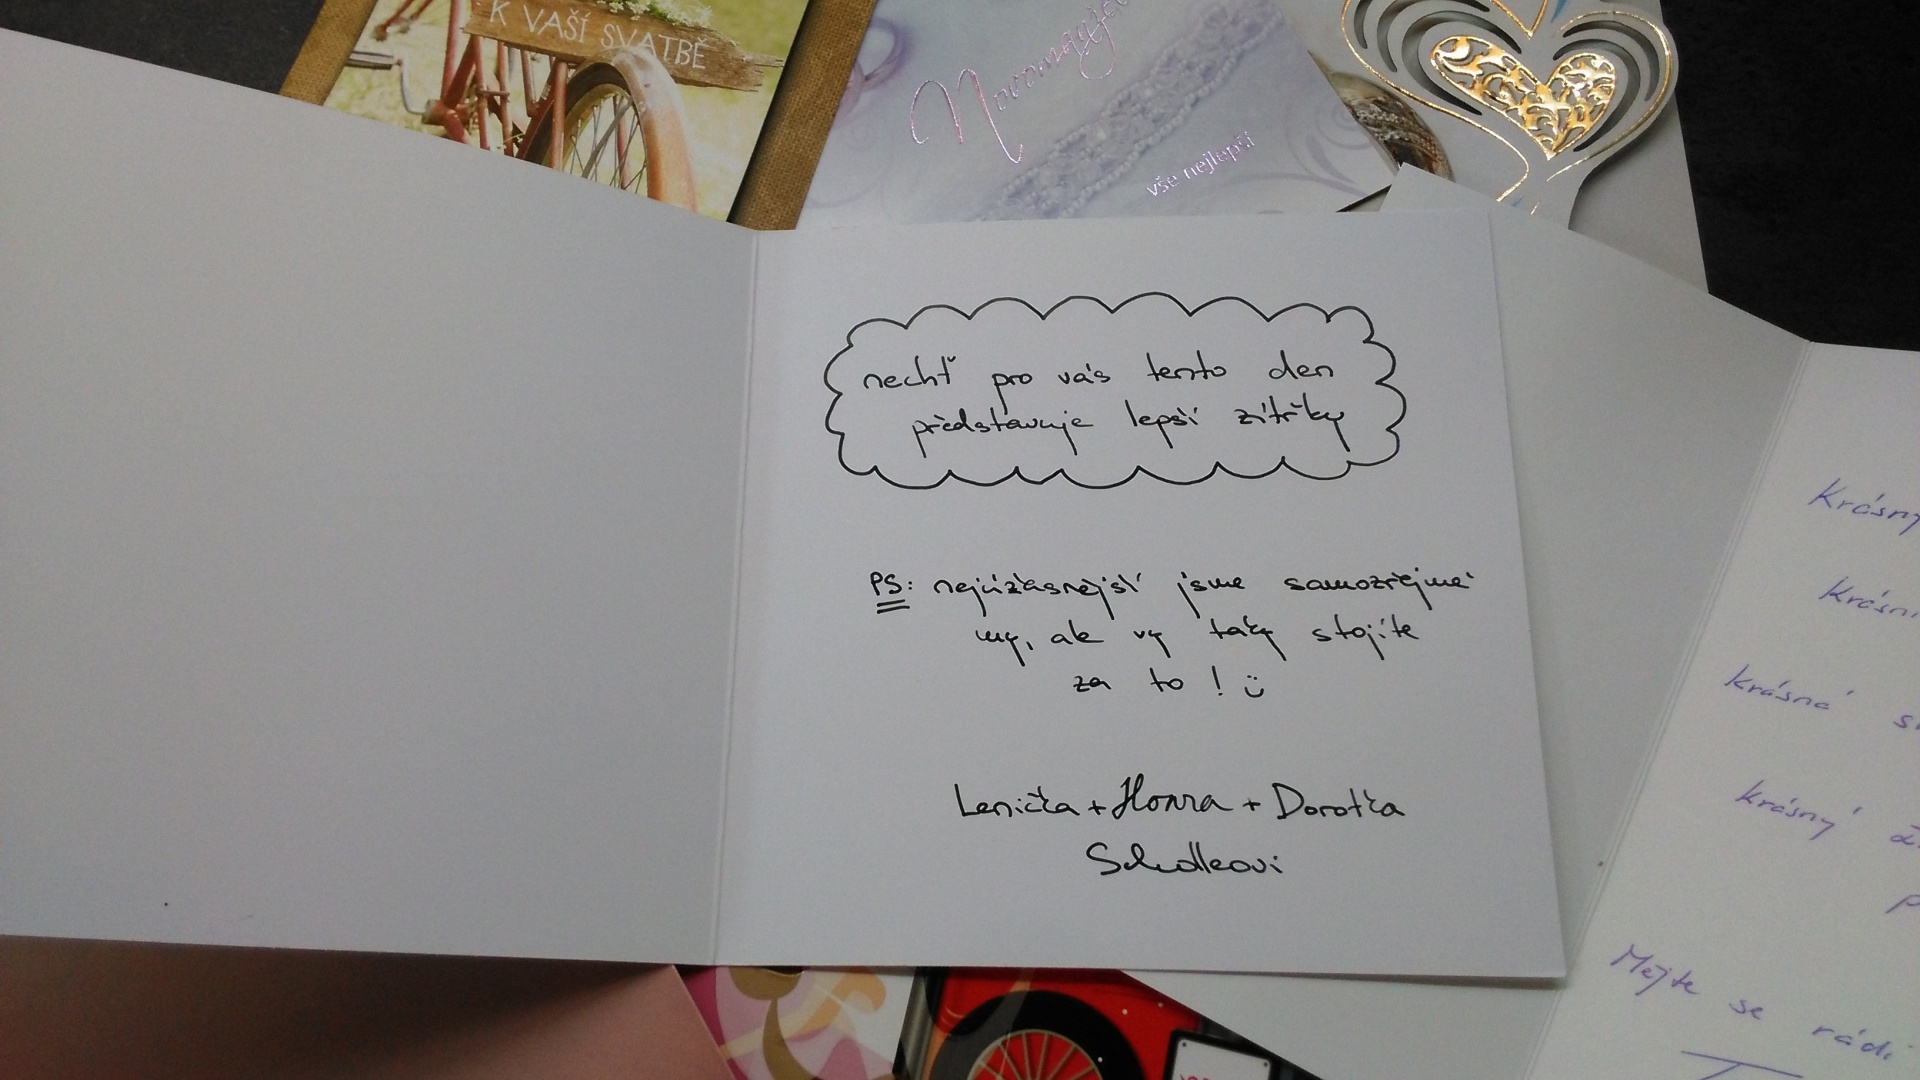 K VAŠÍ SVATBĚ
vše nejlepší
nechť pro vás tento den
představuje lepší zítřky
PS: nejúžasnější jsme samozřejmě
my, ale vy taky stojíte
za to! :)
Lenička + Honza + Dorotka
Krásný
Krásní
Krásné
Krásný
Mějte se rádi